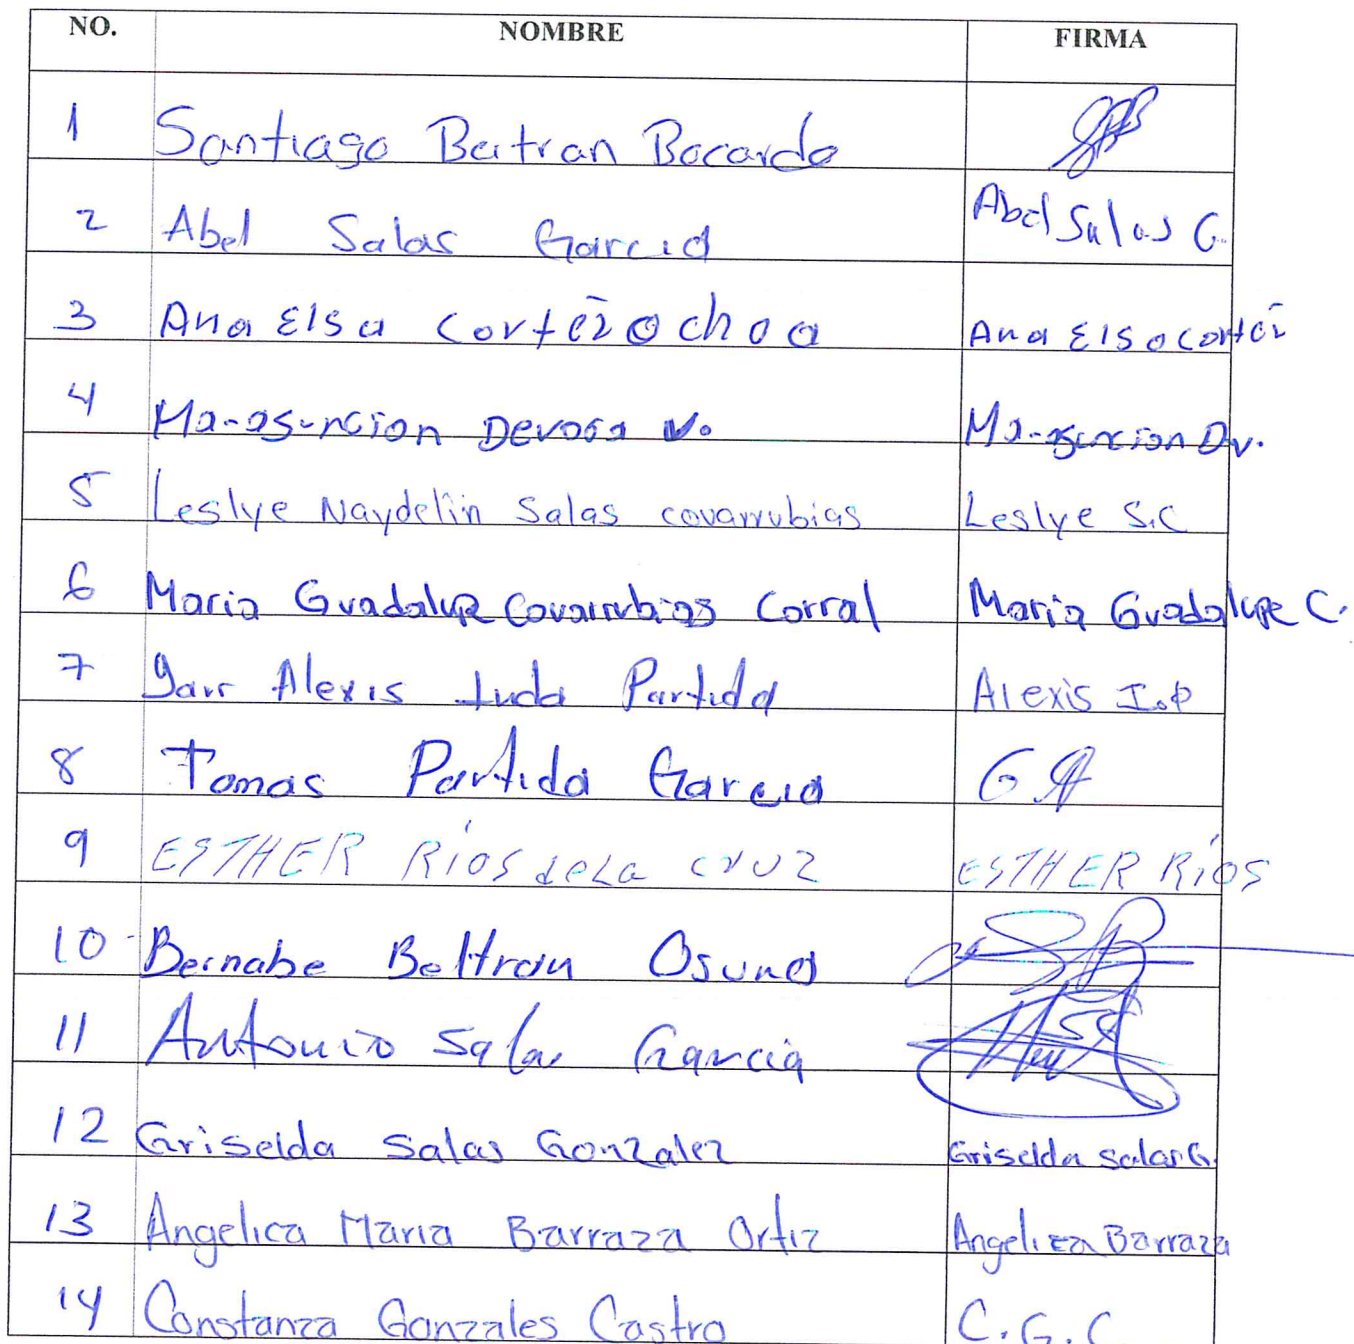 NO. NOMBRE FIRMA
1 Santiago Beltran Bocardo
2 Abel Salas Garcia Abel Salas G.
3 Ana Elsa Cortez ochoa Ana Elsa Cortez
4 Ma-asuncion Devora V. Ma-asuncion Dv.
5 Leslye Naydelin Salas covarrubias Leslye S.C
6 Maria Guadalupe Covarrubias Corral Maria Guadalupe C.
7 Alexis Partida Alexis I.P
8 Tomas Partida Garcia
9 ESTHER RÍOS deLa cruz ESTHER RÍOS
10 Bernabe Beltran Osuna
11 Antonio Salas Garcia
12 Griselda Salas Gonzalez Griselda Salas G.
13 Angelica Maria Barraza Ortiz Angelica Barraza
14 Constanza Gonzales Castro C.G.C